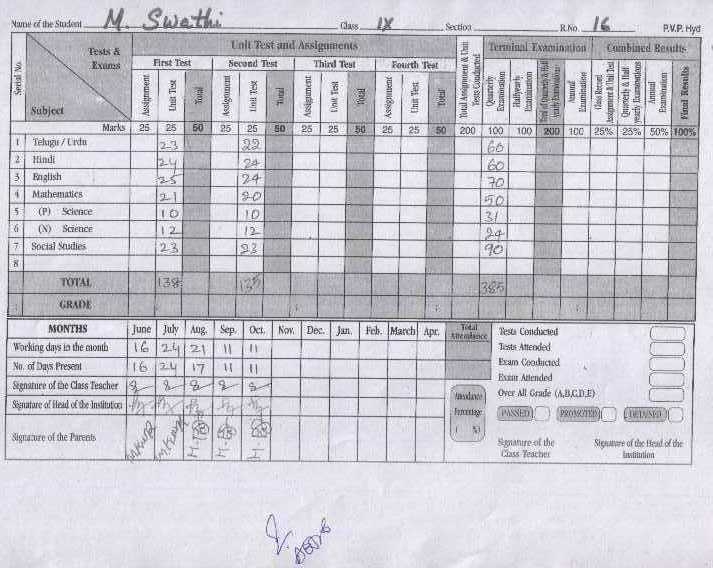 Name of the Student M. Swathi Class IX Section R.No. 16 P.V.P. Hyd
Serial No. Tests & Exams Subject
Unit Test and Assignments
First Test Second Test Third Test Fourth Test
Assignment Unit Test Total Assignment Unit Test Total Assignment Unit Test Total Assignment Unit Test Total
Total Assignment & Unit Tests Conducted
Terminal Examination
Quarterly Examination Halfyearly Examination Total of Quarterly & Half yearly Examinations Annual Examination
Combined Results
Class Record, Assignment & Unit Test Quarterly & Half yearly Examinations Annual Examination Final Results
Marks 25 25 50 25 25 50 25 25 50 25 25 50 200 100 100 200 100 25% 25% 50% 100%
1 Telugu / Urdu 23 22 60
2 Hindi 24 24 60
3 English 25 24 70
4 Mathematics 21 20 50
5 (P) Science 10 10 31
6 (N) Science 12 12 24
7 Social Studies 23 23 90
8
TOTAL 138 135 385
GRADE
MONTHS June July Aug. Sep. Oct. Nov. Dec. Jan. Feb. March Apr. Total Attendance
Working days in the month 16 24 21 11 11
No. of Days Present 16 24 17 11 11
Signature of the Class Teacher
Signature of Head of the Institution
Signature of the Parents
Attendance Percentage ( %)
Tests Conducted
Tests Attended
Exam Conducted
Exam Attended
Over All Grade (A,B,C,D,E)
PASSED PROMOTED DETAINED
Signature of the Class Teacher
Signature of the Head of the Institution